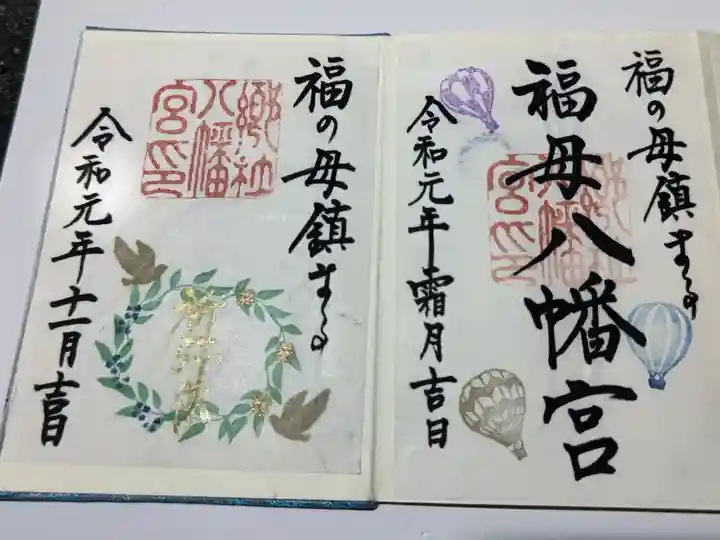 福の母鎮まる
福母八幡宮
郷社八幡宮印
令和元年霜月吉日
福の母鎮まる
郷社八幡宮印
令和元年十一月吉日